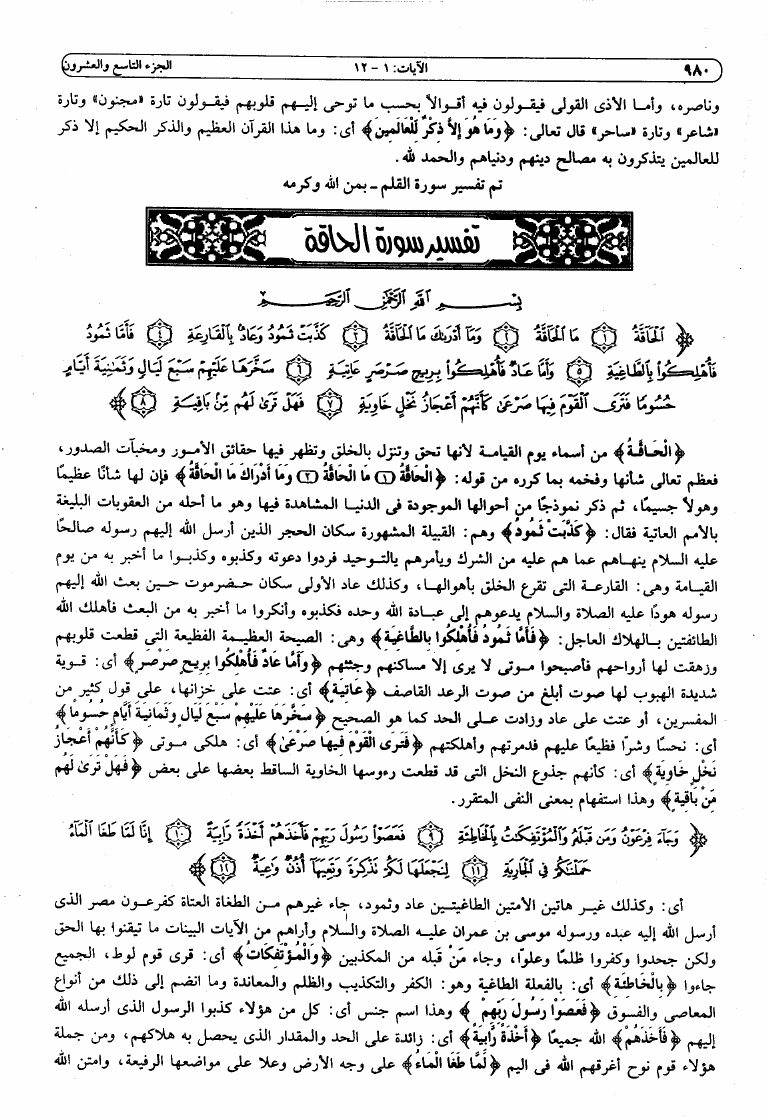 ٩٨٠ الآيات: ١ - ١٢ الجزء التاسع والعشرون
وناصره، وأمـا الأذى القولى فيقـولون فيه أقـوالاً بحسب ما توحى إليـهم قلوبهم فيقـولون تارة «مجنون» وتارة
«شاعر» وتارة «ساحر» قال تعالى: ﴿وَمَا هُوَ إِلاَّ ذِكْرٌ لِّلْعَالَمِينَ﴾ أى: وما هذا القرآن العظيم والذكر الحكيم إلا ذكر
للعالمين يتذكرون به مصالح دينهم ودنياهم والحمد لله.
تم تفسير سورة القلم - بمن الله وكرمه
تفسير سورة الحاقة
بِسْمِ اللَّهِ الرَّحْمَنِ الرَّحِيمِ
﴿ الْحَاقَّةُ ١ مَا الْحَاقَّةُ ٢ وَمَا أَدْرَاكَ مَا الْحَاقَّةُ ٣ كَذَّبَتْ ثَمُودُ وَعَادٌ بِالْقَارِعَةِ ٤ فَأَمَّا ثَمُودُ
فَأُهْلِكُوا بِالطَّاغِيَةِ ٥ وَأَمَّا عَادٌ فَأُهْلِكُوا بِرِيحٍ صَرْصَرٍ عَاتِيَةٍ ٦ سَخَّرَهَا عَلَيْهِمْ سَبْعَ لَيَالٍ وَثَمَانِيَةَ أَيَّامٍ
حُسُومًا فَتَرَى الْقَوْمَ فِيهَا صَرْعَى كَأَنَّهُمْ أَعْجَازُ نَخْلٍ خَاوِيَةٍ ٧ فَهَلْ تَرَى لَهُم مِّنْ بَاقِيَةٍ ٨ ﴾
﴿الْحَاقَّةُ﴾ من أسماء يوم القيامـة لأنها تحق وتنزل بالخلق وتظهر فيها حقائق الأمـور ومخبآت الصدور،
فعظم تعالى شأنها وفخمه بما كرره من قوله: ﴿الْحَاقَّةُ (١) مَا الْحَاقَّةُ (٢) وَمَا أَدْرَاكَ مَا الْحَاقَّةُ﴾ فإن لها شأنًا عظيمًا
وهولاً جسيمًا، ثم ذكر نموذجًا من أحوالها الموجودة فى الدنيـا المشاهدة فيها وهو ما أحله من العقوبات البليغة
بالأمم العاتية فقال: ﴿كَذَّبَتْ ثَمُودُ﴾ وهم: القبيلة المشهورة سكان الحجر الذين أرسل الله إليهم رسوله صالحًا
عليه السلام ينهـاهم عما هم عليه من الشرك ويأمرهم بالتـوحيد فردوا دعوته وكذبوه وكذبـوا ما أخبر به من يوم
القيـامة وهى: القارعـة التى تقرع الخلق بأهوالهـا، وكذلك عاد الأولى سكان حـضرموت حـين بعث الله إليهم
رسوله هودًا عليه الصلاة والسلام يدعوهم إلى عبـادة الله وحده فكذبوه وأنكروا ما أخبر به من البعث فأهلك الله
الطائفتين بـالهلاك العاجل: ﴿فَأَمَّا ثَمُودُ فَأُهْلِكُوا بِالطَّاغِيَةِ﴾ وهى: الصيحة العظيـمة الفظيعة التى قطعت قلوبهم
وزهقت لها أرواحهم فأصبحوا مـوتى لا يرى إلا مساكنهم وجثثهم ﴿وَأَمَّا عَادٌ فَأُهْلِكُوا بِرِيحٍ صَرْصَرٍ﴾ أى: قـوية
شديدة الهبوب لها صوت أبلغ من صوت الرعد القاصف ﴿عَاتِيَةٍ﴾ أى: عتت على خزانها، على قول كثير من
المفسرين، أو عتت على عاد وزادت علـى الحد كما هو الصحيح ﴿سَخَّرَهَا عَلَيْهِمْ سَبْعَ لَيَالٍ وَثَمَانِيَةَ أَيَّامٍ حُسُومًا﴾
أى: نحسًا وشرًا فظيعًا عليهم فدمرتهم وأهلكتهم ﴿فَتَرَى الْقَوْمَ فِيهَا صَرْعَىٰ﴾ أى: هلكى مـوتى ﴿كَأَنَّهُمْ أَعْجَازُ
نَخْلٍ خَاوِيَةٍ﴾ أى: كأنهم جذوع النخل التى قد قطعت رءوسها الخاوية الساقط بعضها على بعض ﴿فَهَلْ تَرَىٰ لَهُم
مِّنْ بَاقِيَةٍ﴾ وهذا استفهام بمعنى النفى المتقرر.
﴿ وَجَاءَ فِرْعَوْنُ وَمَن قَبْلَهُ وَالْمُؤْتَفِكَاتُ بِالْخَاطِئَةِ ٩ فَعَصَوْا رَسُولَ رَبِّهِمْ فَأَخَذَهُمْ أَخْذَةً رَّابِيَةً ١٠ إِنَّا لَمَّا طَغَا الْمَاءُ
حَمَلْنَاكُمْ فِي الْجَارِيَةِ ١١ لِنَجْعَلَهَا لَكُمْ تَذْكِرَةً وَتَعِيَهَا أُذُنٌ وَاعِيَةٌ ١٢ ﴾
أى: وكذلك غيـر هاتين الأمتين الطاغيتـين عاد وثمود، جاء غيرهم مـن الطغاة العتاة كفرعـون مصر الذى
أرسل الله إليه عبده ورسوله موسى بن عمران عليـه الصلاة والسلام وأراهم من الآيات البينات ما تيقنوا بها الحق
ولكن جحدوا وكفروا ظلمًا وعلوًا، وجاء مَنْ قبله من المكذبين ﴿وَالْمُؤْتَفِكَاتُ﴾ أى: قرى قوم لوط، الجميع
جاءوا ﴿بِالْخَاطِئَةِ﴾ أى: بالفعلة الطاغية وهو: الكفر والتكذيب والظلم والمعاندة وما انضم إلى ذلك من أنواع
المعاصى والفسوق ﴿فَعَصَوْا رَسُولَ رَبِّهِمْ﴾ وهذا اسم جنس أى: كل من هؤلاء كذبوا الرسول الذى أرسله الله
إليهم ﴿فَأَخَذَهُمْ﴾ الله جميعًا ﴿أَخْذَةً رَّابِيَةً﴾ أى: زائدة على الحد والمقدار الذى يحصل به هلاكهم، ومن جملة
هؤلاء قوم نوح أغرقهم الله فى اليم ﴿لَمَّا طَغَا الْمَاءُ﴾ على وجه الأرض وعلا على مواضعها الرفيعة، وامتن الله